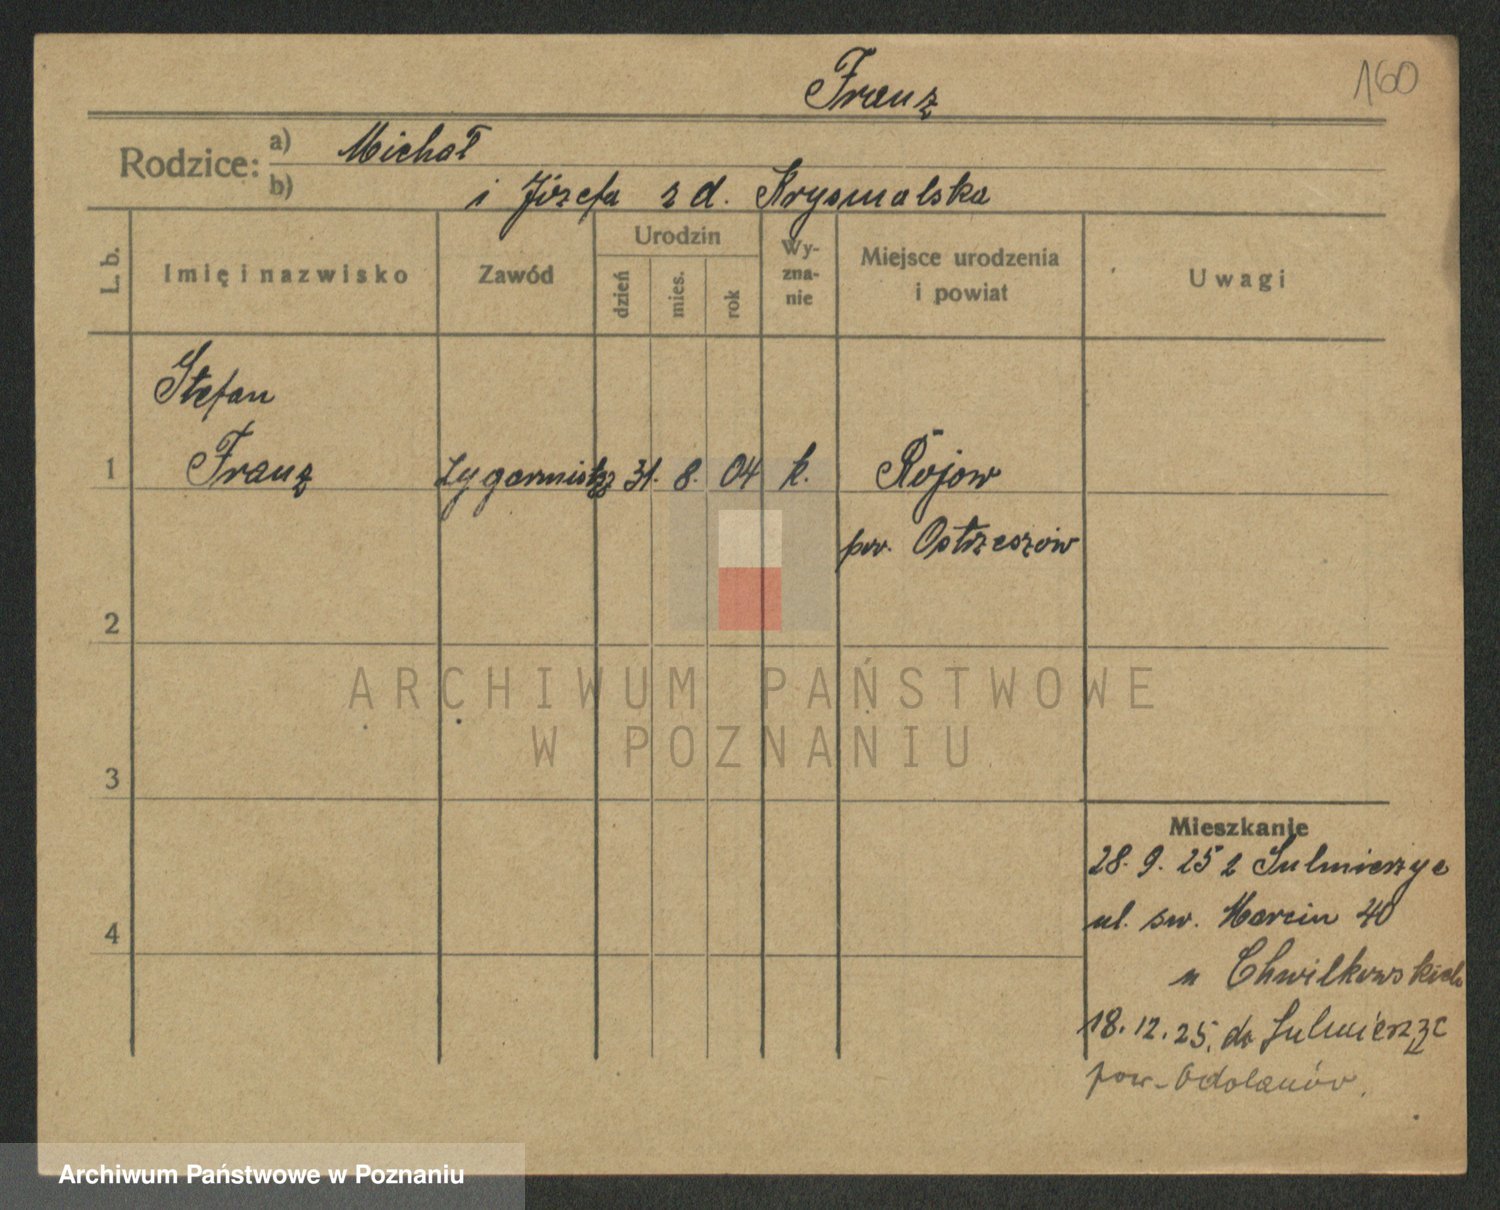 Franz
160
Rodzice: a) Michał
b) i Józefa z d. Krysmalska
L. b.
Imię i nazwisko
Zawód
Urodzin
dzień
mies.
rok
Wy-
zna-
nie
Miejsce urodzenia
i powiat
Uwagi
Stefan
1 Franz zygarmistrz 31. 8. 04 k. Rojow
pow. Ostrzeszów
2
3
4
Mieszkanie
28. 9. 25 z Sulmierzyc
ul. św. Marcin 40
u Chwilkowskich
18. 12. 25. do Sulmierzyc
pow. Odolanów.
ARCHIWUM PAŃSTWOWE
W POZNANIU
Archiwum Państwowe w Poznaniu